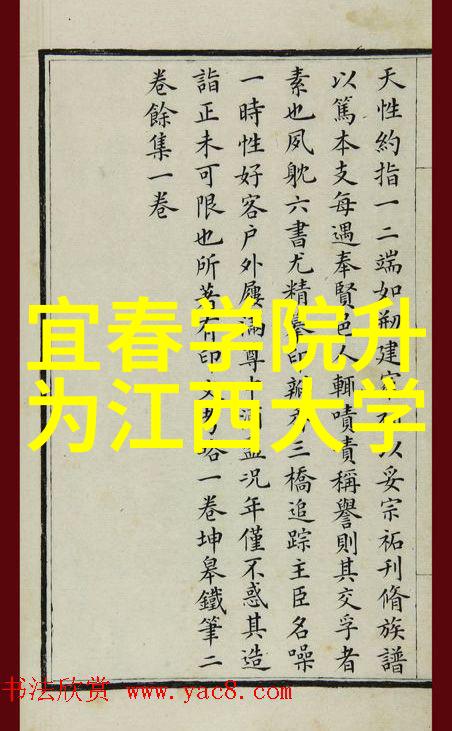 天性約指一二端如剏建宗祠以妥宗祏刊脩族譜
以篤本支每遇奉賢邑人輒嘖嘖稱譽則其交孚者
素也夙躭六書尤精摹印瓣香三橋追踪主臣名噪
一時性好客户外屨滿尊中酒盈況年僅不惑其造
詣正未可限也所著有印文考畧一卷坤臯鐵筆二
卷餘集一卷
宜春学院升
为江西大学
书法欣赏 www.yac8.com